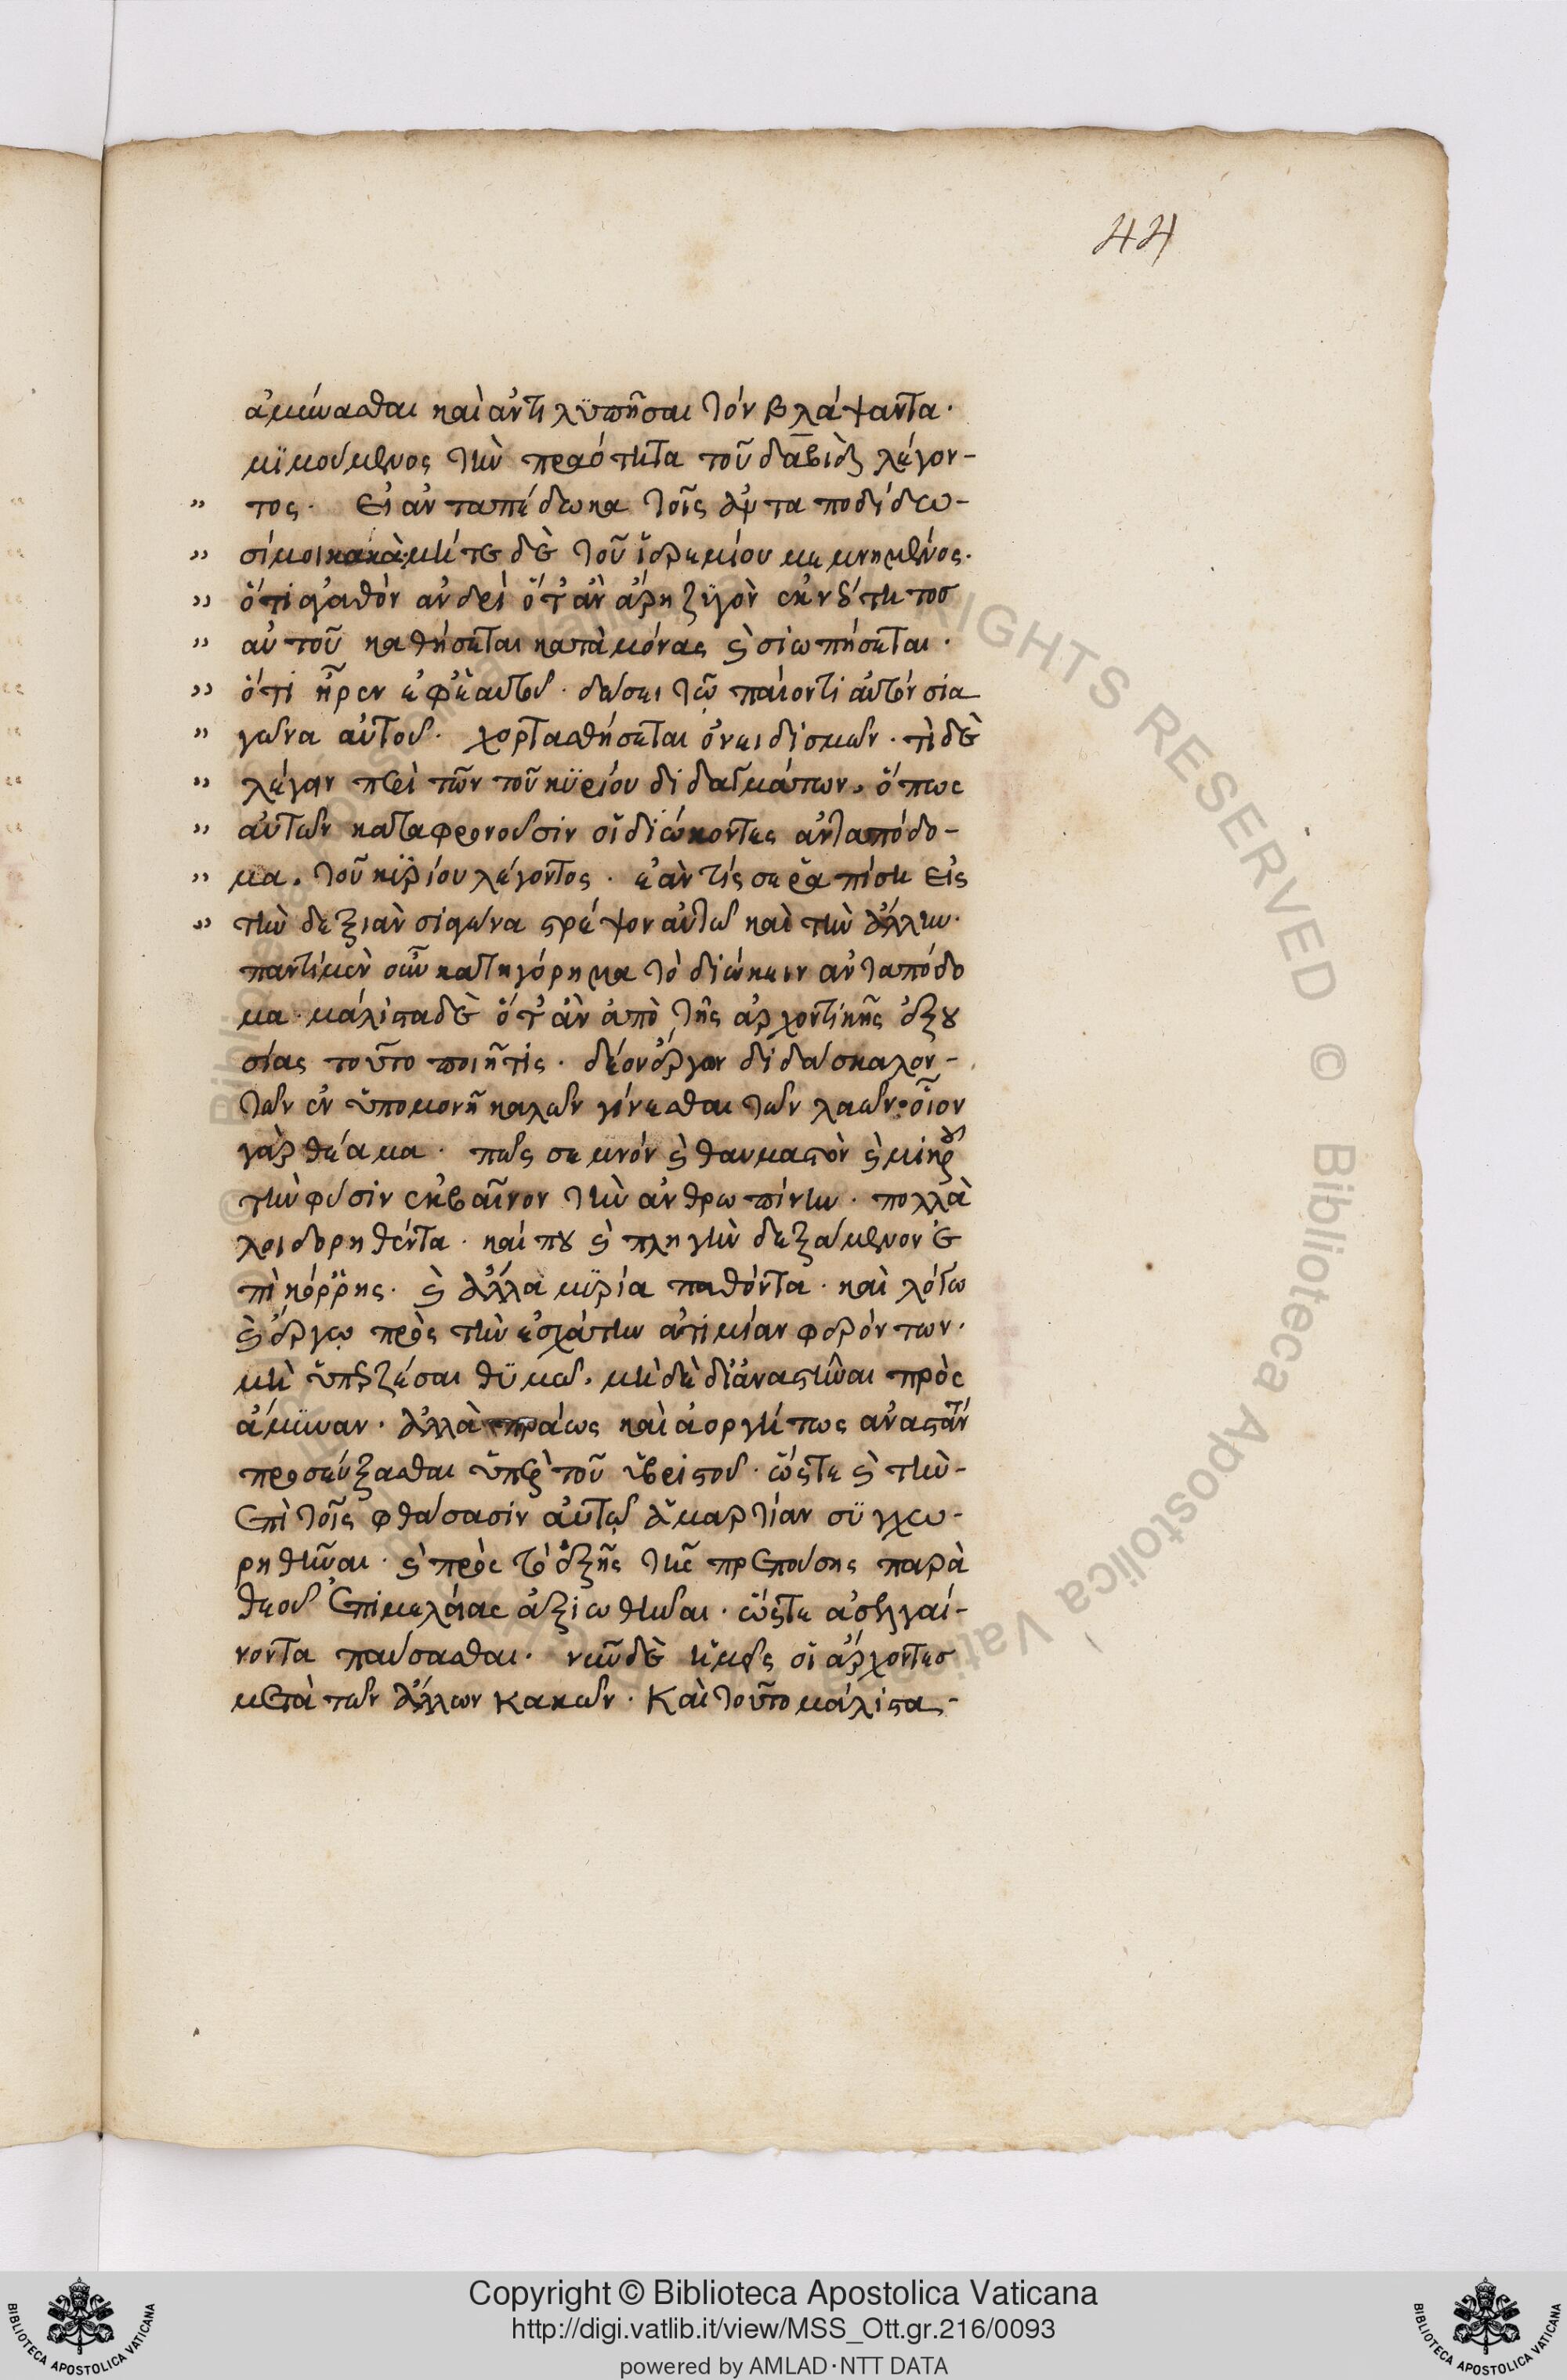 44
ἀμύνασθαι καὶ ἀντιλϋπῆσαι τόν βλάψαντα·
μϊμούμενος τὴν πραότητα τοῦ δα̅βιδ λέγον-
" τος· Εἰ ἀνταπέδωκα τοῖς ἀνταποδιδοῦ-
" σίμοι κακὰ· μήτε δὲ τοῦ ἱερεμίου μεμνημένος·
" ὅτι ἀγαθὸν ἀνδρί ὅτ' ἂν ἄρη ζϋγὸν ἐκ νεότητος
" αὐτοῦ καθήσεται καταμόνας καὶ σιωπήσεται·
" ὅτι ἦρεν ἐφ' ἑαυτοῦ· δώσει τῷ παίοντι αὐτόν σία
" γῶνα αὐτοῦ· χορτασθήσεται ὀνειδισμῶν· τί δὲ
" λέγειν περὶ τῶν τοῦ κϋρίου διδαγμάτων, ὅπως
" αὐτῶν καταφρονοῦσιν οἱ διώκοντες ἀνταπόδο-
" μα, τοῦ κϋρίου λέγοντος· ἐάν τίς σε ῥαπίση εἰς
" τὴν δεξιὰν σιγῶνα στρέψον αὐτῶ καὶ τὴν ἄλλην·
παντὶ μὲν οὖν κατηγόρημα τὸ διώκειν ἀνταπόδο
μα· μάλιστα δὲ ὅτ' ἂν ἀπὸ τῆς ἀρχοντικῆς ἐξου
σίας τοῦτο ποιῆ τίς· δέον ἔργον διδάσκαλον-
τῶν ἐν ὑπομονῆ καλῶν γίνεσθαι τῶν λαῶν· οἷον
γὰρ θέαμα· πῶς σεμνόν καὶ θαυμαστὸν καὶ μικροῦ
τὴν φύσιν ἐκβαῖνον τὴν ἀνθρωπίνην· πολλὰ
λοιδορηθέντα· καί που καὶ πληγὴν δεξάμενον ἐ
πὶ κόρρης· καὶ ἄλλα μϋρία παθόντα· καὶ λόγω
καὶ ἔργῳ πρὸς τὴν ἐσχάτην ἀτιμίαν φερόντων·
μὴ ὑπερζέσαι θϋμῶ, μὴ δὲ διἀναστῆναι πρὸς
ἄμϋναν· ἀλλὰ πράως καὶ ἀοργήτως ἀναστάντ
προσεύξασθαι ὑπὲρ τοῦ ὑβριστοῦ· ὥστε καὶ τὴν-
ἐπὶ τοῖς φθάσασιν αὐτῷ ἁμαρτίαν σϋγχω-
ρηθῆναι· καὶ πρὸς τὸ ἑξῆς τῆς πρεπούσης παρὰ
θεοῦ ἐπιμελείας ἀξιωθῆναι· ὥστε ἀσελγαί-
νοντα παύσασθαι· νῦν δὲ ἡμεῖς οἱ ἄρχοντες
μετὰ τῶν ἄλλων κακῶν· Καὶ τοῦτο μάλιστα-
© Biblioteca Apostolica Vaticana
ALL RIGHTS RESERVED © Biblioteca Apostolica Vaticana
BIBLIOTECA APOSTOLICA VATICANA
Copyright © Biblioteca Apostolica Vaticana
http://digi.vatlib.it/view/MSS_Ott.gr.216/0093
powered by AMLAD·NTT DATA
BIBLIOTECA APOSTOLICA VATICANA